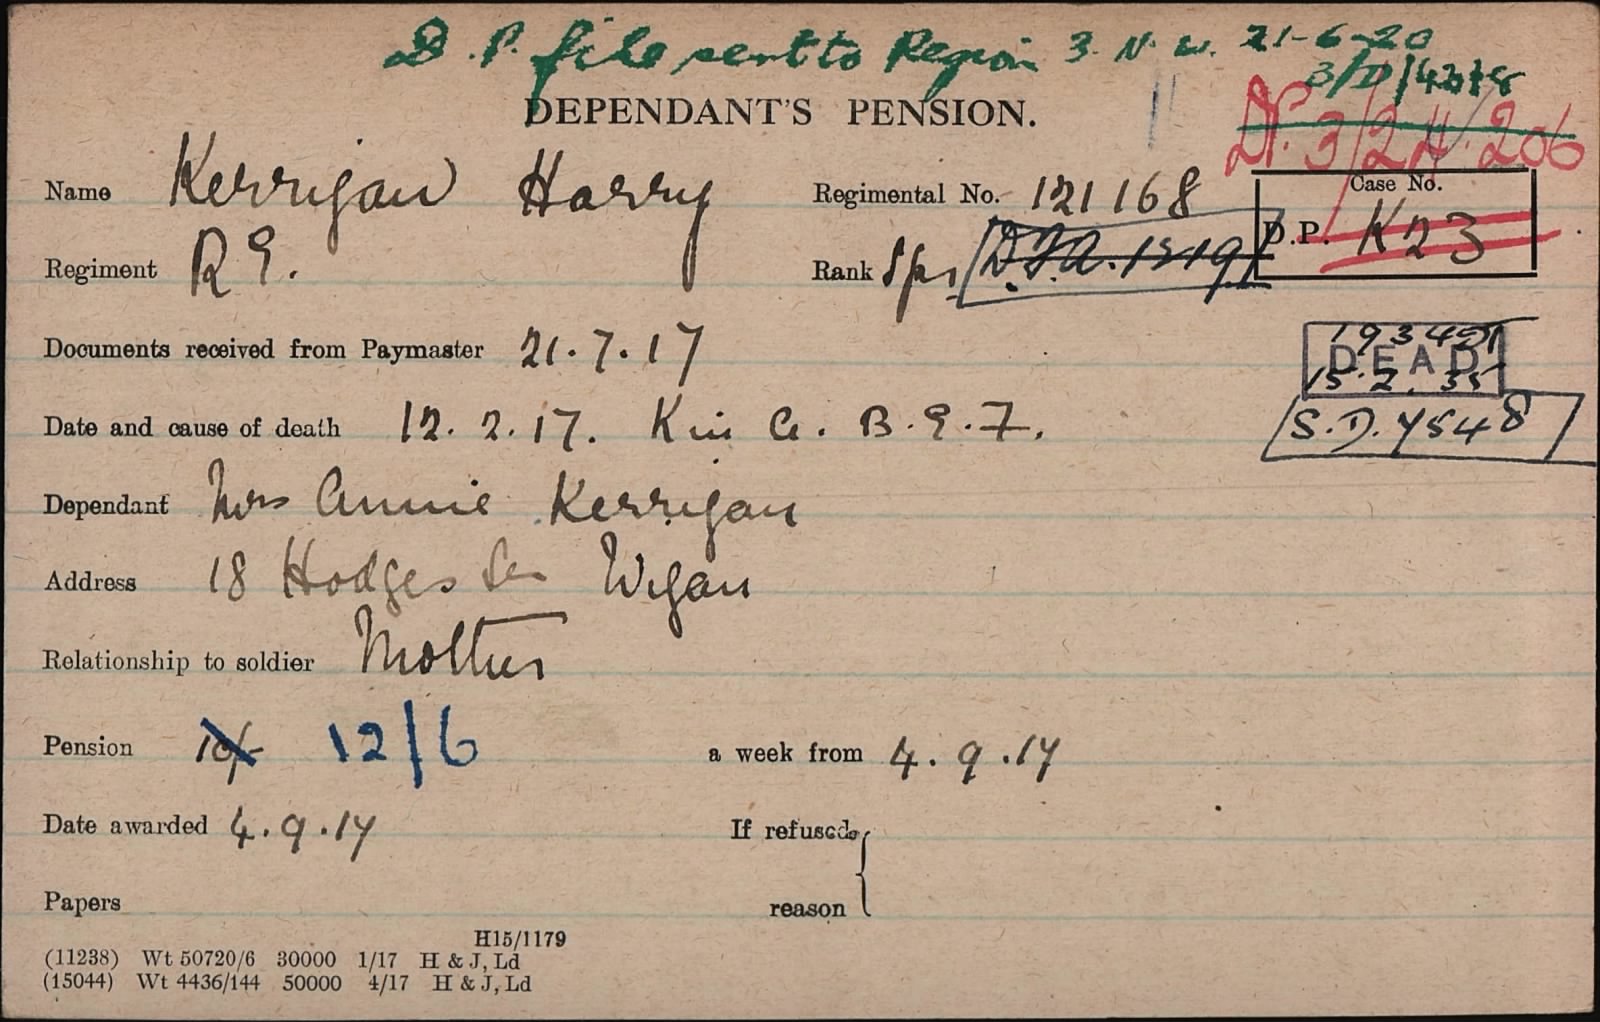 D.P. file sent to Region 3. N.W. 21-6-20
3/D/4218
DEPENDANT'S PENSION.
DP. 3/2K.206
Name Kerrigan Harry Regimental No. 121168
Case No.
D.P. K23
Regiment R E. Rank Spr
Documents received from Paymaster 21.7.17
DEAD
15.2.35
Date and cause of death 12.2.17. K in A. B.E.F.
S.D. 7548
Dependant Mrs Annie Kerrigan
Address 18 Hodges Wigan
Relationship to soldier Mother
Pension 10/- 12/6 a week from 4.9.17
Date awarded 4.9.17 If refused,
Papers reason
H15/1179
(11238) Wt 50720/6 30000 1/17 H & J, Ld
(15044) Wt 4436/144 50000 4/17 H & J, Ld